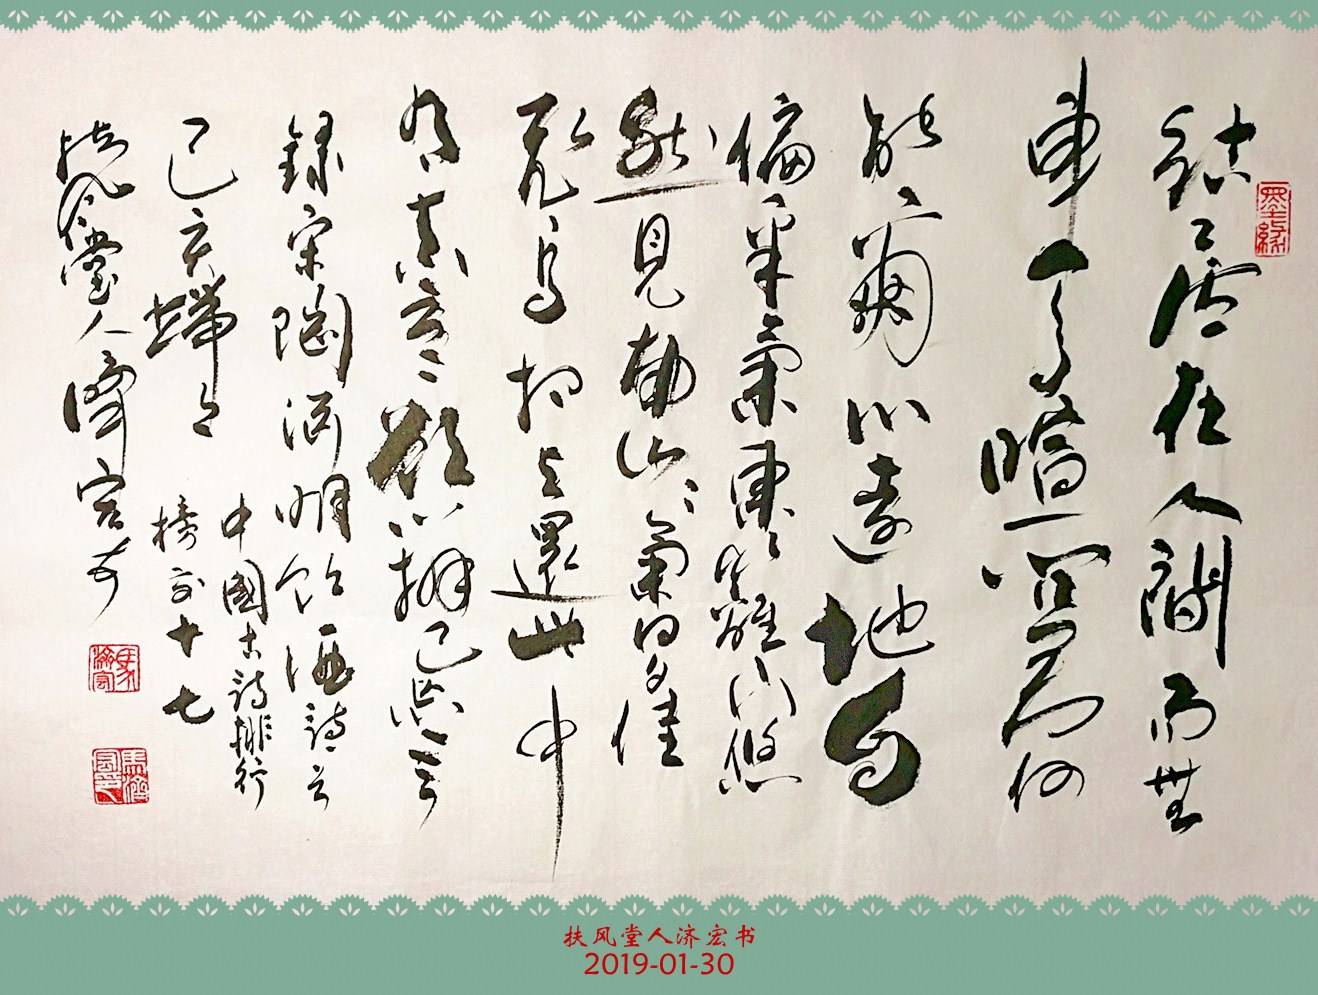 墨緣
結廬在人間而無
車馬喧問君何
能爾心遠地自
偏采菊東籬下悠
然見南山山氣日夕佳
飛鳥相與還此中
有真意欲辨已忘言
錄宋陶渊明飲酒詩
中國古詩排行
榜 十七
己亥
扶風堂人濟宏書
馬濟宏
馬濟宏印
扶风堂人济宏书
2019-01-30